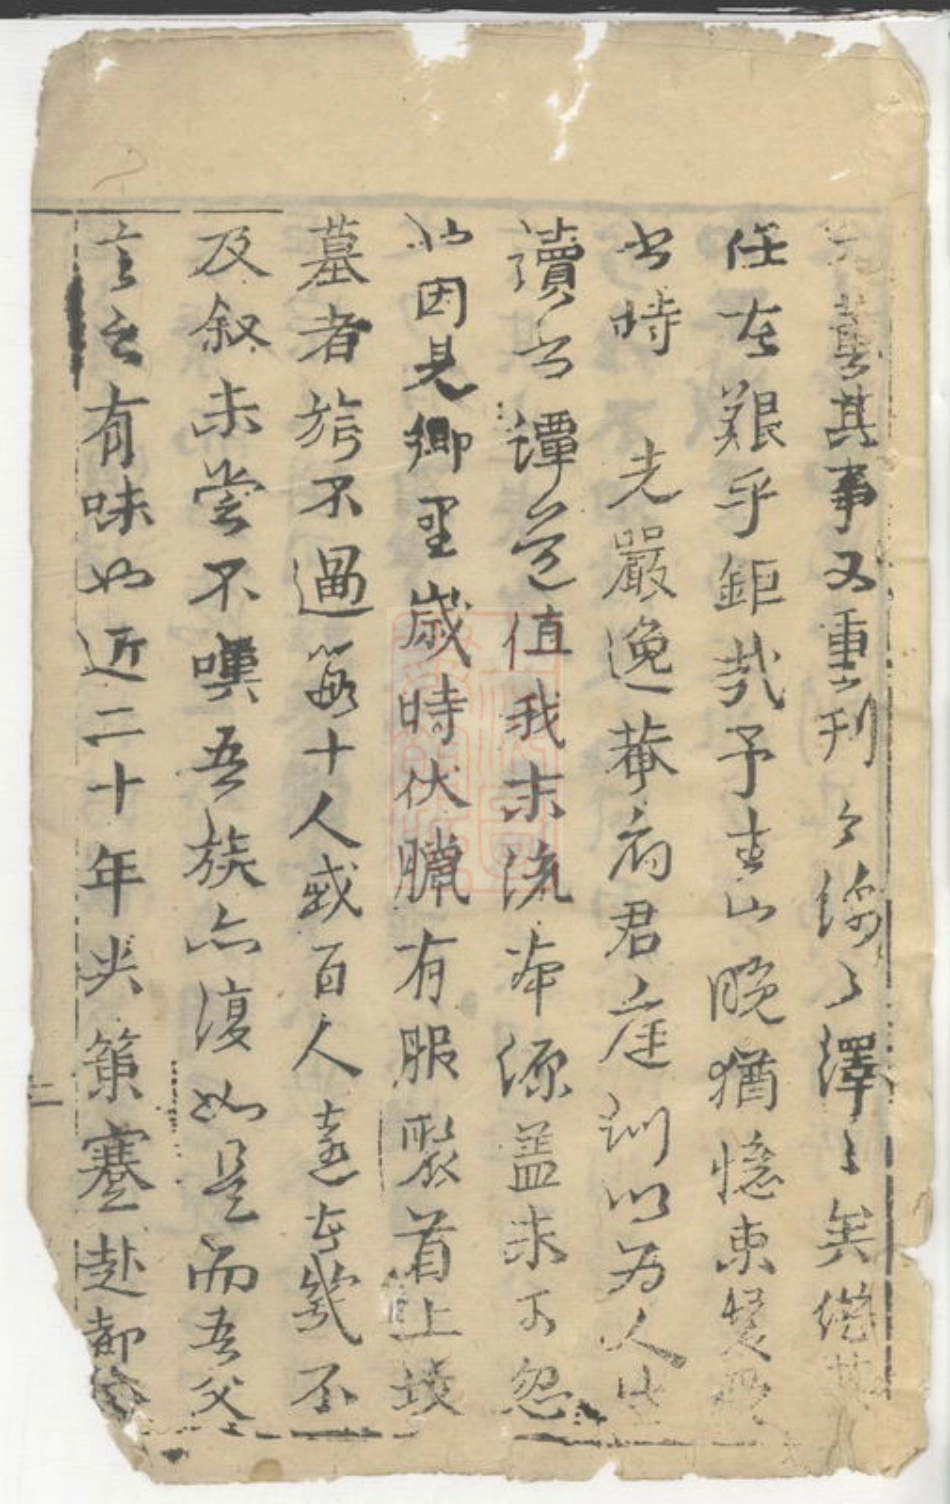 其事又重刊之綿々澤々矣繼其
任在艱乎鉅哉予生山晚猶憶束髮受
書時先嚴逸菴府君庭訓以為人生
讀書譚道值我末流本源盖未可忽
如因見鄉里歲時伏臘有服製首上墳
墓者旂不過數十人或百人遠在幾不
及叙未嘗不嘆吾族亦復如是而吾父
言之有味如近二十年來策蹇赴都
二